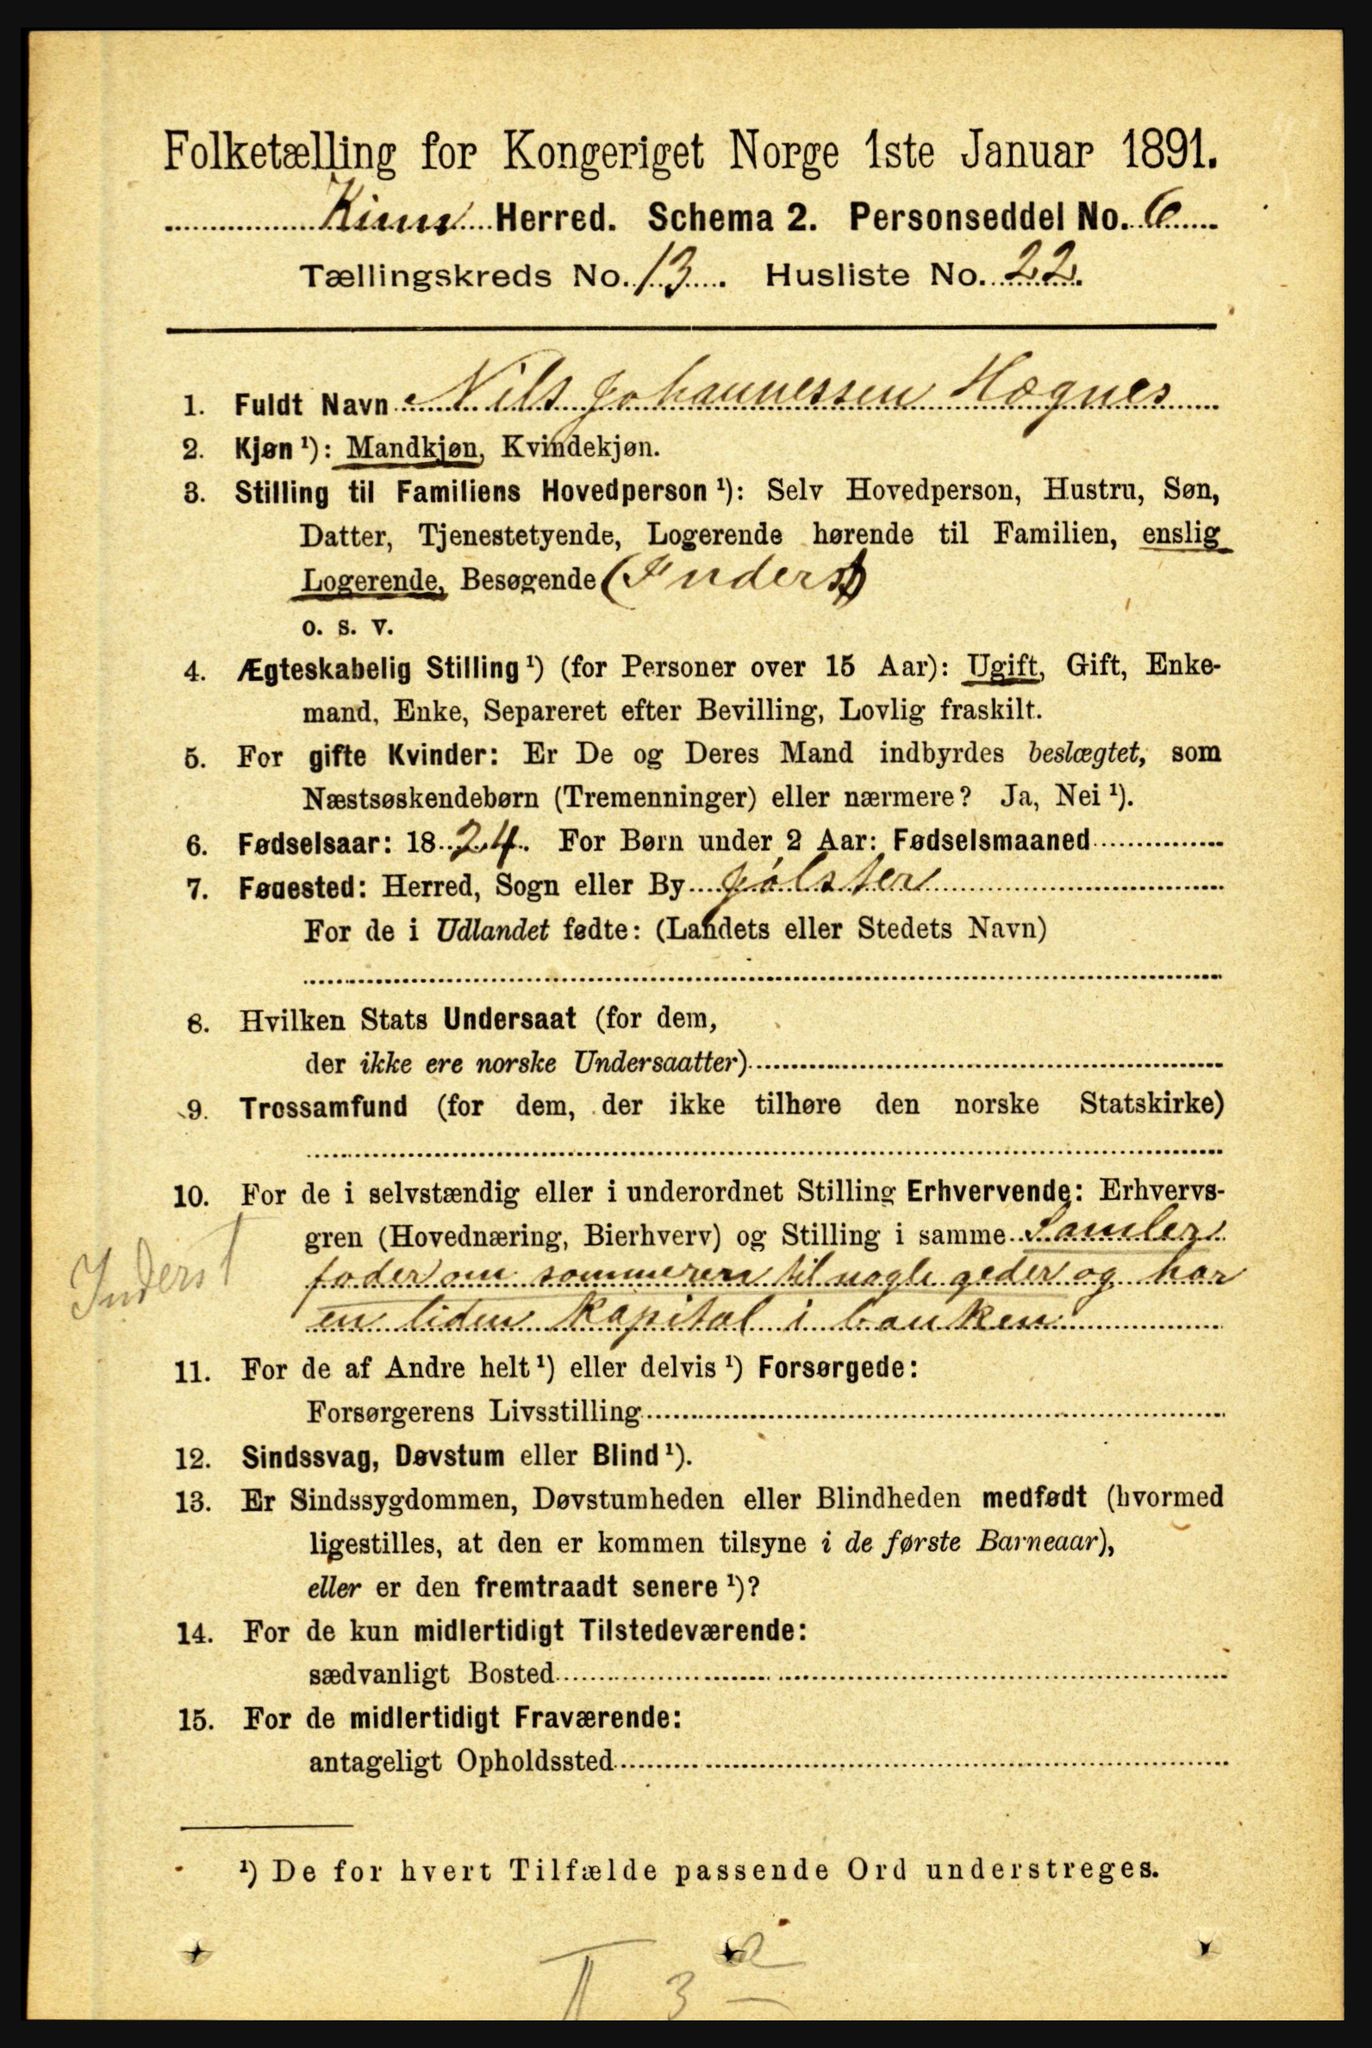 Folketælling for Kongeriget Norge 1ste Januar 1891.
Kinn Herred. Schema 2. Personseddel No. 6
Tællingskreds No. 13. Husliste No. 22.
1. Fuldt Navn Nils Johannessen Høgnes
2. Kjøn ¹): Mandkjøn, Kvindekjøn.
3. Stilling til Familiens Hovedperson ¹): Selv Hovedperson, Hustru, Søn,
Datter, Tjenestetyende, Logerende hørende til Familien, enslig
Logerende, Besøgende (Inderst)
o. s. v.
4. Ægteskabelig Stilling ¹) (for Personer over 15 Aar): Ugift, Gift, Enke-
mand, Enke, Separeret efter Bevilling, Lovlig fraskilt.
5. For gifte Kvinder: Er De og Deres Mand indbyrdes beslægtet, som
Næstsøskendebørn (Tremenninger) eller nærmere? Ja, Nei ¹).
6. Fødselsaar: 1824. For Børn under 2 Aar: Fødselsmaaned
7. Fødested: Herred, Sogn eller By Jølster
For de i Udlandet fødte: (Landets eller Stedets Navn)
8. Hvilken Stats Undersaat (for dem,
der ikke ere norske Undersaatter)
9. Trossamfund (for dem, der ikke tilhøre den norske Statskirke)
10. For de i selvstændig eller i underordnet Stilling Erhvervende: Erhvervs-
gren (Hovednæring, Bierhverv) og Stilling i samme Samler
foder om sommeren til nogle geder og har
en liden kapital i banken
Inderst
11. For de af Andre helt ¹) eller delvis ¹) Forsørgede:
Forsørgerens Livsstilling
12. Sindssvag, Døvstum eller Blind ¹).
13. Er Sindssygdommen, Døvstumheden eller Blindheden medfødt (hvormed
ligestilles, at den er kommen tilsyne i de første Barneaar),
eller er den fremtraadt senere ¹)?
14. For de kun midlertidigt Tilstedeværende:
sædvanligt Bosted
15. For de midlertidigt Fraværende:
antageligt Opholdssted
¹) De for hvert Tilfælde passende Ord understreges.
II 3 2